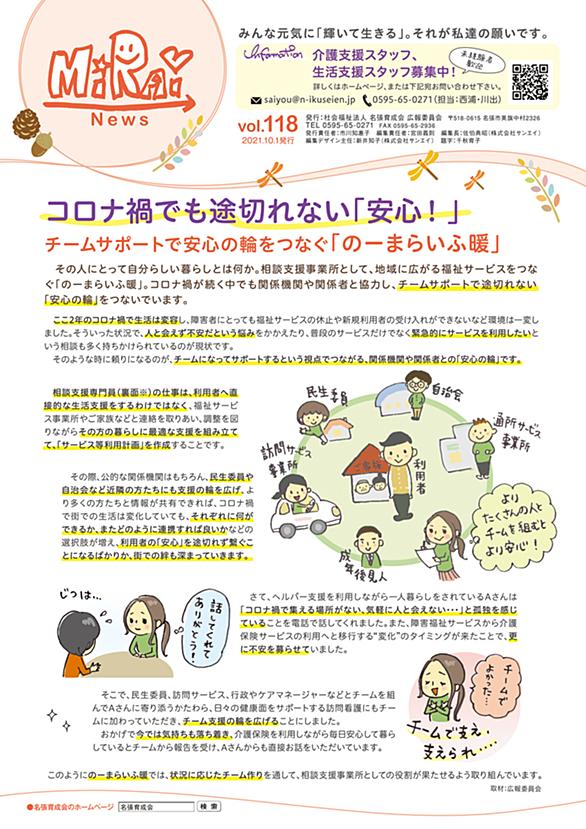 MiRAi
News
みんな元気に「輝いて生きる」。それが私達の願いです。
Information
介護支援スタッフ、
生活支援スタッフ募集中！
未経験者
歓迎
詳しくはホームページ、または下記宛お問い合わせ下さい。
saiyou@n-ikuseien.jp 0595-65-0271（担当：西浦・川出）
vol.118
2021.10.1発行
発行：社会福祉法人 名張育成会 広報委員会 〒518-0615 名張市美旗中村2326
TEL 0595-65-0271 FAX 0595-65-2936
発行責任者：市川知恵子 編集責任者：宮田義則 編集長：佐伯典昭（株式会社サンエイ）
編集デザイン主任：新井知子（株式会社サンエイ） 題字：千秋育子
コロナ禍でも途切れない「安心！」
チームサポートで安心の輪をつなぐ「のーまらいふ暖」
その人にとって自分らしい暮らしとは何か。相談支援事業所として、地域に広がる福祉サービスをつな
ぐ「のーまらいふ暖」。コロナ禍が続く中でも関係機関や関係者と協力し、チームサポートで途切れない
「安心の輪」をつないでいます。
ここ2年のコロナ禍で生活は変容し、障害者にとっても福祉サービスの休止や新規利用者の受け入れができないなど環境は一変し
ました。そういった状況で、人と会えず不安だという悩みをかかえたり、普段のサービスだけでなく緊急的にサービスを利用したいと
いう相談も多く持ちかけられているのが現状です。
そのような時に頼りになるのが、チームになってサポートするという視点でつながる、関係機関や関係者との「安心の輪」です。
相談支援専門員（裏面※）の仕事は、利用者へ直
接的な生活支援をするわけではなく、福祉サービ
ス事業所やご家族などと連絡を取りあい、調整を図
りながらその方の暮らしに最適な支援を組み立て
て、「サービス等利用計画」を作成することです。
その際、公的な関係機関はもちろん、民生委員や
自治会など近隣の方たちにも支援の輪を広げ、よ
り多くの方たちと情報が共有できれば、コロナ禍
で街での生活は変化していても、それぞれに何が
できるか、またどのように連携すれば良いかなどの
選択肢が増え、利用者の「安心」を途切れず繋ぐこ
とになるばかりか、街での絆も深まっていきます。
民生委員
自治会
通所サービス
事業所
訪問サービス
事業所
ご家族
利用者
成年後見人
より
たくさんの人と
チームを組むと
より安心！
じつは…
話してくれて
ありがとう！
さて、ヘルパー支援を利用しながら一人暮らしをされているAさんは
「コロナ禍で集える場所がない、気軽に人と会えない・・・」と孤独を感じ
ていることを電話で話してくれました。また、障害福祉サービスから介護
保険サービスの利用へと移行する"変化"のタイミングが来たことで、更
に不安を募らせていました。
そこで、民生委員、訪問サービス、行政やケアマネージャーなどとチームを組
んでAさんに寄り添うかたわら、日々の健康面をサポートする訪問看護にもチー
ムに加わっていただき、チーム支援の輪を広げることにしました。
おかげで今では気持ちも落ち着き、介護保険を利用しながら毎日安心して暮ら
しているとチームから報告を受け、Aさんからも直接お話をいただいています。
チームで
よかった…
チームで支え、
支えられ・・・・
このようにのーまらいふ暖では、状況に応じたチーム作りを通して、相談支援事業所としての役割が果たせるよう取り組んでいます。
取材：広報委員会
●名張育成会のホームページ 名張育成会 検索